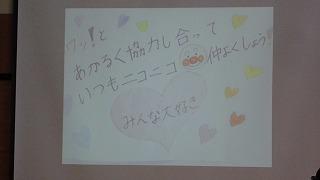 ワッ!と
あかるく協力し合って
いつもニコニコ仲よくしよう
みんな大好き